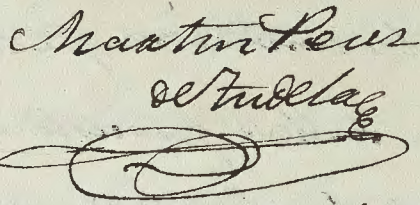 Martin Perez
de Tudela